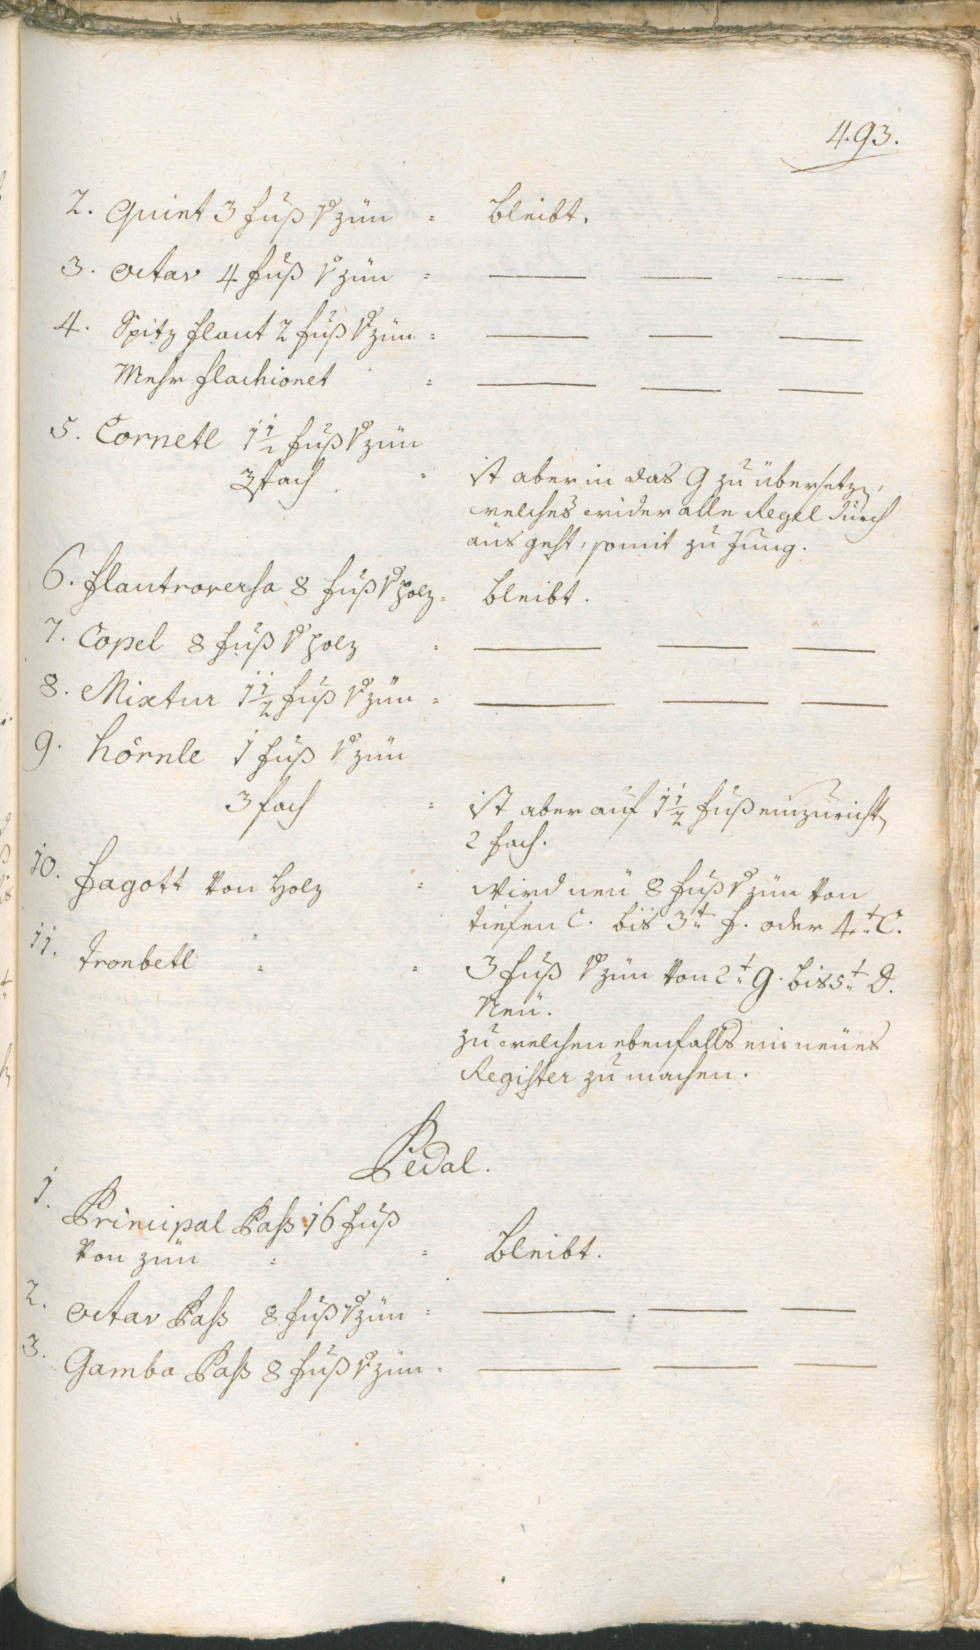 493.
2. Quint 3 fuß v zün = bleibt.
3. Octav 4 fuß v zün = — — —
4. Spitz flaut 2 fuß v zün = — — —
Mehr flachionet = — — —
5. Cornetl 1 1/2 fuß v zün
3fach = ist aber in das G zu übersetzn,
welches wider alle Regel durch
aus geht, somit zu Jung.
6. flautroversa 8 fuß v holz = bleibt.
7. Copel 8 fuß v holz = — — —
8. Mixtur 1 1/2 fuß v zün = — — —
9. hörnle 1 fuß v zün
3 fach = ist aber auf 1 1/2 fuß einzuricht
2 fach.
10. fagott von Holz = wird neü 8 fuß v zün von
tiefen C. bis 3t f. oder 4t C.
11. Tronbetl = = 3 fuß v zün von 2t g. bis 5t D.
Neü.
zu welchen ebenfalls ein neües
Register zu machen.
Pedal.
1. Principal Baß 16 fuß
von zün = = bleibt.
2. Octav Baß 8 fuß v zün = — — —
3. Gamba Baß 8 fuß v zün = — — —